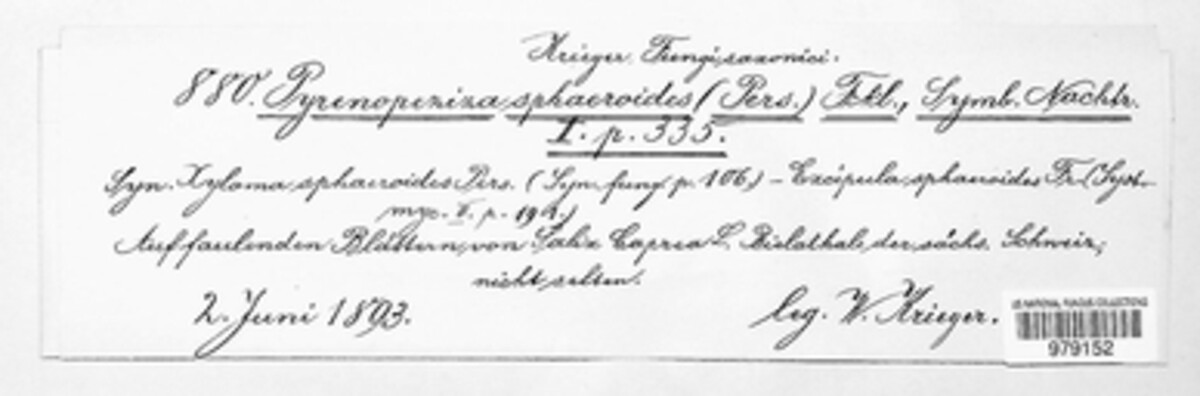 Krieger, Fungi saxonici.
880. Pyrenopeziza sphaeroides (Pers.) Fckl., Symb. Nachtr.
I. p. 335.
Syn. Xyloma sphaeroides Pers. (Syn. fung. p. 106.) – Excipula sphaeroides Fr. (Syst.
myc. II. p.
Auf faulenden Blättern von Salix Caprea L. Bielathal, der sächs. Schweiz,
nicht selten.
2. Juni 1893.
leg. W. Krieger.
US NATIONAL FUNGUS COLLECTIONS
979152